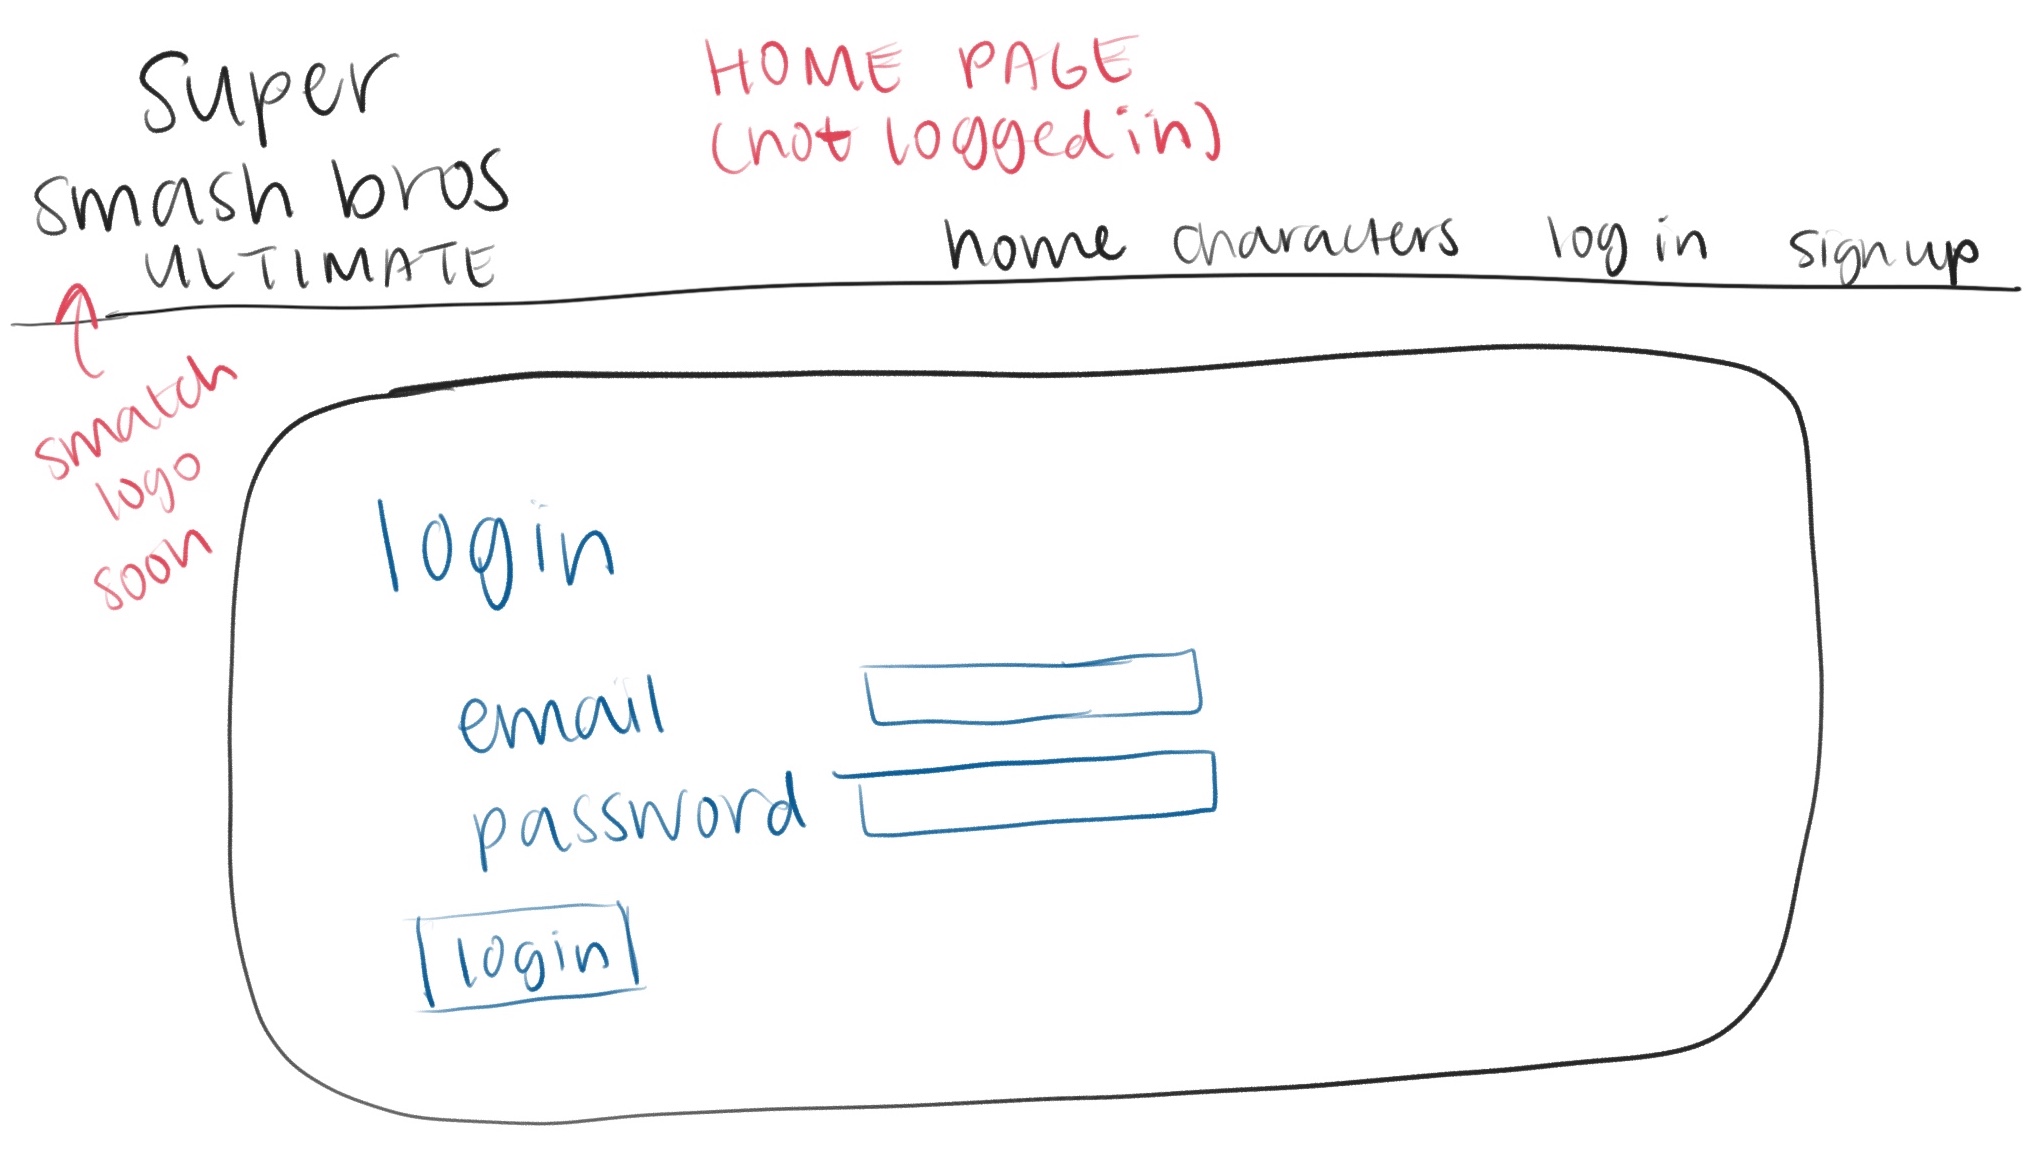 super
smash bros
ULTIMATE
HOME PAGE
(not logged in)
home characters log in sign up
smatch
logo
soon
login
email
password
login